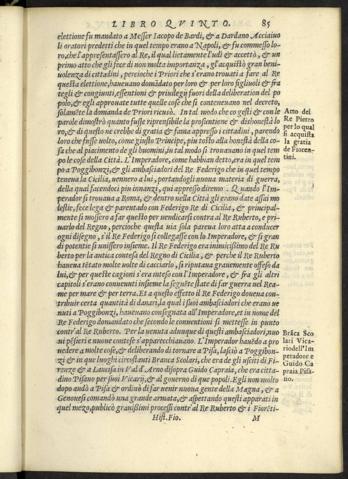 LIBRO QVINTO. 85
elettione fu mandato a Messer Iacopo de Bardi, & a Dardano Acciaiuo
li oratori predetti che in quel tempo erano a Napoli, & fu commesso lo-
ro, che l'appresentassero al Re, il qual lietamente l'udì & accettò, & un
primo atto che gli fece di non molta importanza, gl'acquistò gran beni-
uolenza di cittadini, percioche i Priori che s'erano trouati a fare al Re
questa elettione, haueuano domãdato per loro & per loro figliuoli & fra
tegli & congiunti, essentioni & priuilegi fuori della deliberation del po
polo, & egli approuate tutte quelle cose che si conteneuano nel decreto,
solamẽte la domanda de Priori ricusò. In tal modo che co gesti & con le
parole dimostrò quanto fusse riprensibile la prosuntione & disbonestà lo
ro, & di questo ne crebbe di gratia & fama appresso i cittadini, parendo
loro che fusse uolto, come giusto Principe, piu tosto alla honestà della co-
sa che al piacimento de gli huomini, in tal modo si trouauano in quel tem
po le cose della Città. L'Imperadore, come habbian detto, era in quel tem
po a Poggibonzi, & gli ambasciadori del Re Federigo che in quel tempo
teneua la Cicilia, uennero a lui, portandogli nuoua materia di guerra,
della qual facendoci piu innanzi, qui appresso diremo. Quando l'Impe-
rador si trouaua a Roma, & dentro nella Città gli erano date assai mo
lestie, fece lega & parentado con Federigo Re di Cicilia, & principal-
mente si mossero a far questo per uendicarsi contra al Re Ruberto, e pri-
uarlo del Regno, perche questa uia sola pareua loro atta a conducer
ogni disegno, s'il Re Federigo si collegasse con lo Imperadore, & si gran
di potentie si unissero insieme. Il Re Federigo era inimicissimo del Re Ru
berto per la antica contesa del Regno di Cicilia, & perche il Re Ruberto
haueua tẽtato molte uolte di cacciarlo, si riputaua grauemente offeso da
lui, & per queste cagioni s'era inteso con l'Imperadore, & fra gli altri
capitoli s'erano conuenuti insieme la seguẽte state di far guerra nel Rea-
me per mare & per terra. Et a questo effetto il Re Federigo doueua con
tribuire certa quantità di danari, la qual i suoi ambasciadori che erano ue
nuti a Poggibonzi, haueuano consegnata all'Imperadore, et in nome del
Re Federigo domandato che secondo le conuentioni si mettesse in punto
contr'al Re Ruberto. Per la uenuta adunque di questi ambasciadori, nuo
ui pensieri e nuoue contese s'apparecchiauano. L'Imperador hauẽdo a pro
uedere a molte cose, & deliberando di tornare a Pisa, lasciò a Poggibon-
zi & in que luoghi circunstanti Branca Scolari, che era de gli usciti di Fi-
renze & a Lancisa in Val d'Arno dispose Guido Capraia, che era citta-
dino Pisano per suoi Vicarij, & al gouerno di que popoli. Egli non molto
dopo andò a Pisa & ordinò di far uenir nuoua gente della Magna, & a
Genouesi comandò una grande armata, & aspettando questi apparati in
quel mezo, publicò grauissimi processi contr'al Re Ruberto & i Fiorẽti-
Hist. Fio. M
Atto del
Re Pietro
per lo qual
si acquista
la gratia
de Fioren-
tini.
Brãca Sco
lari Vica-
rio dell'Im
peradore e
Guido Ca
praia Pisa-
no.